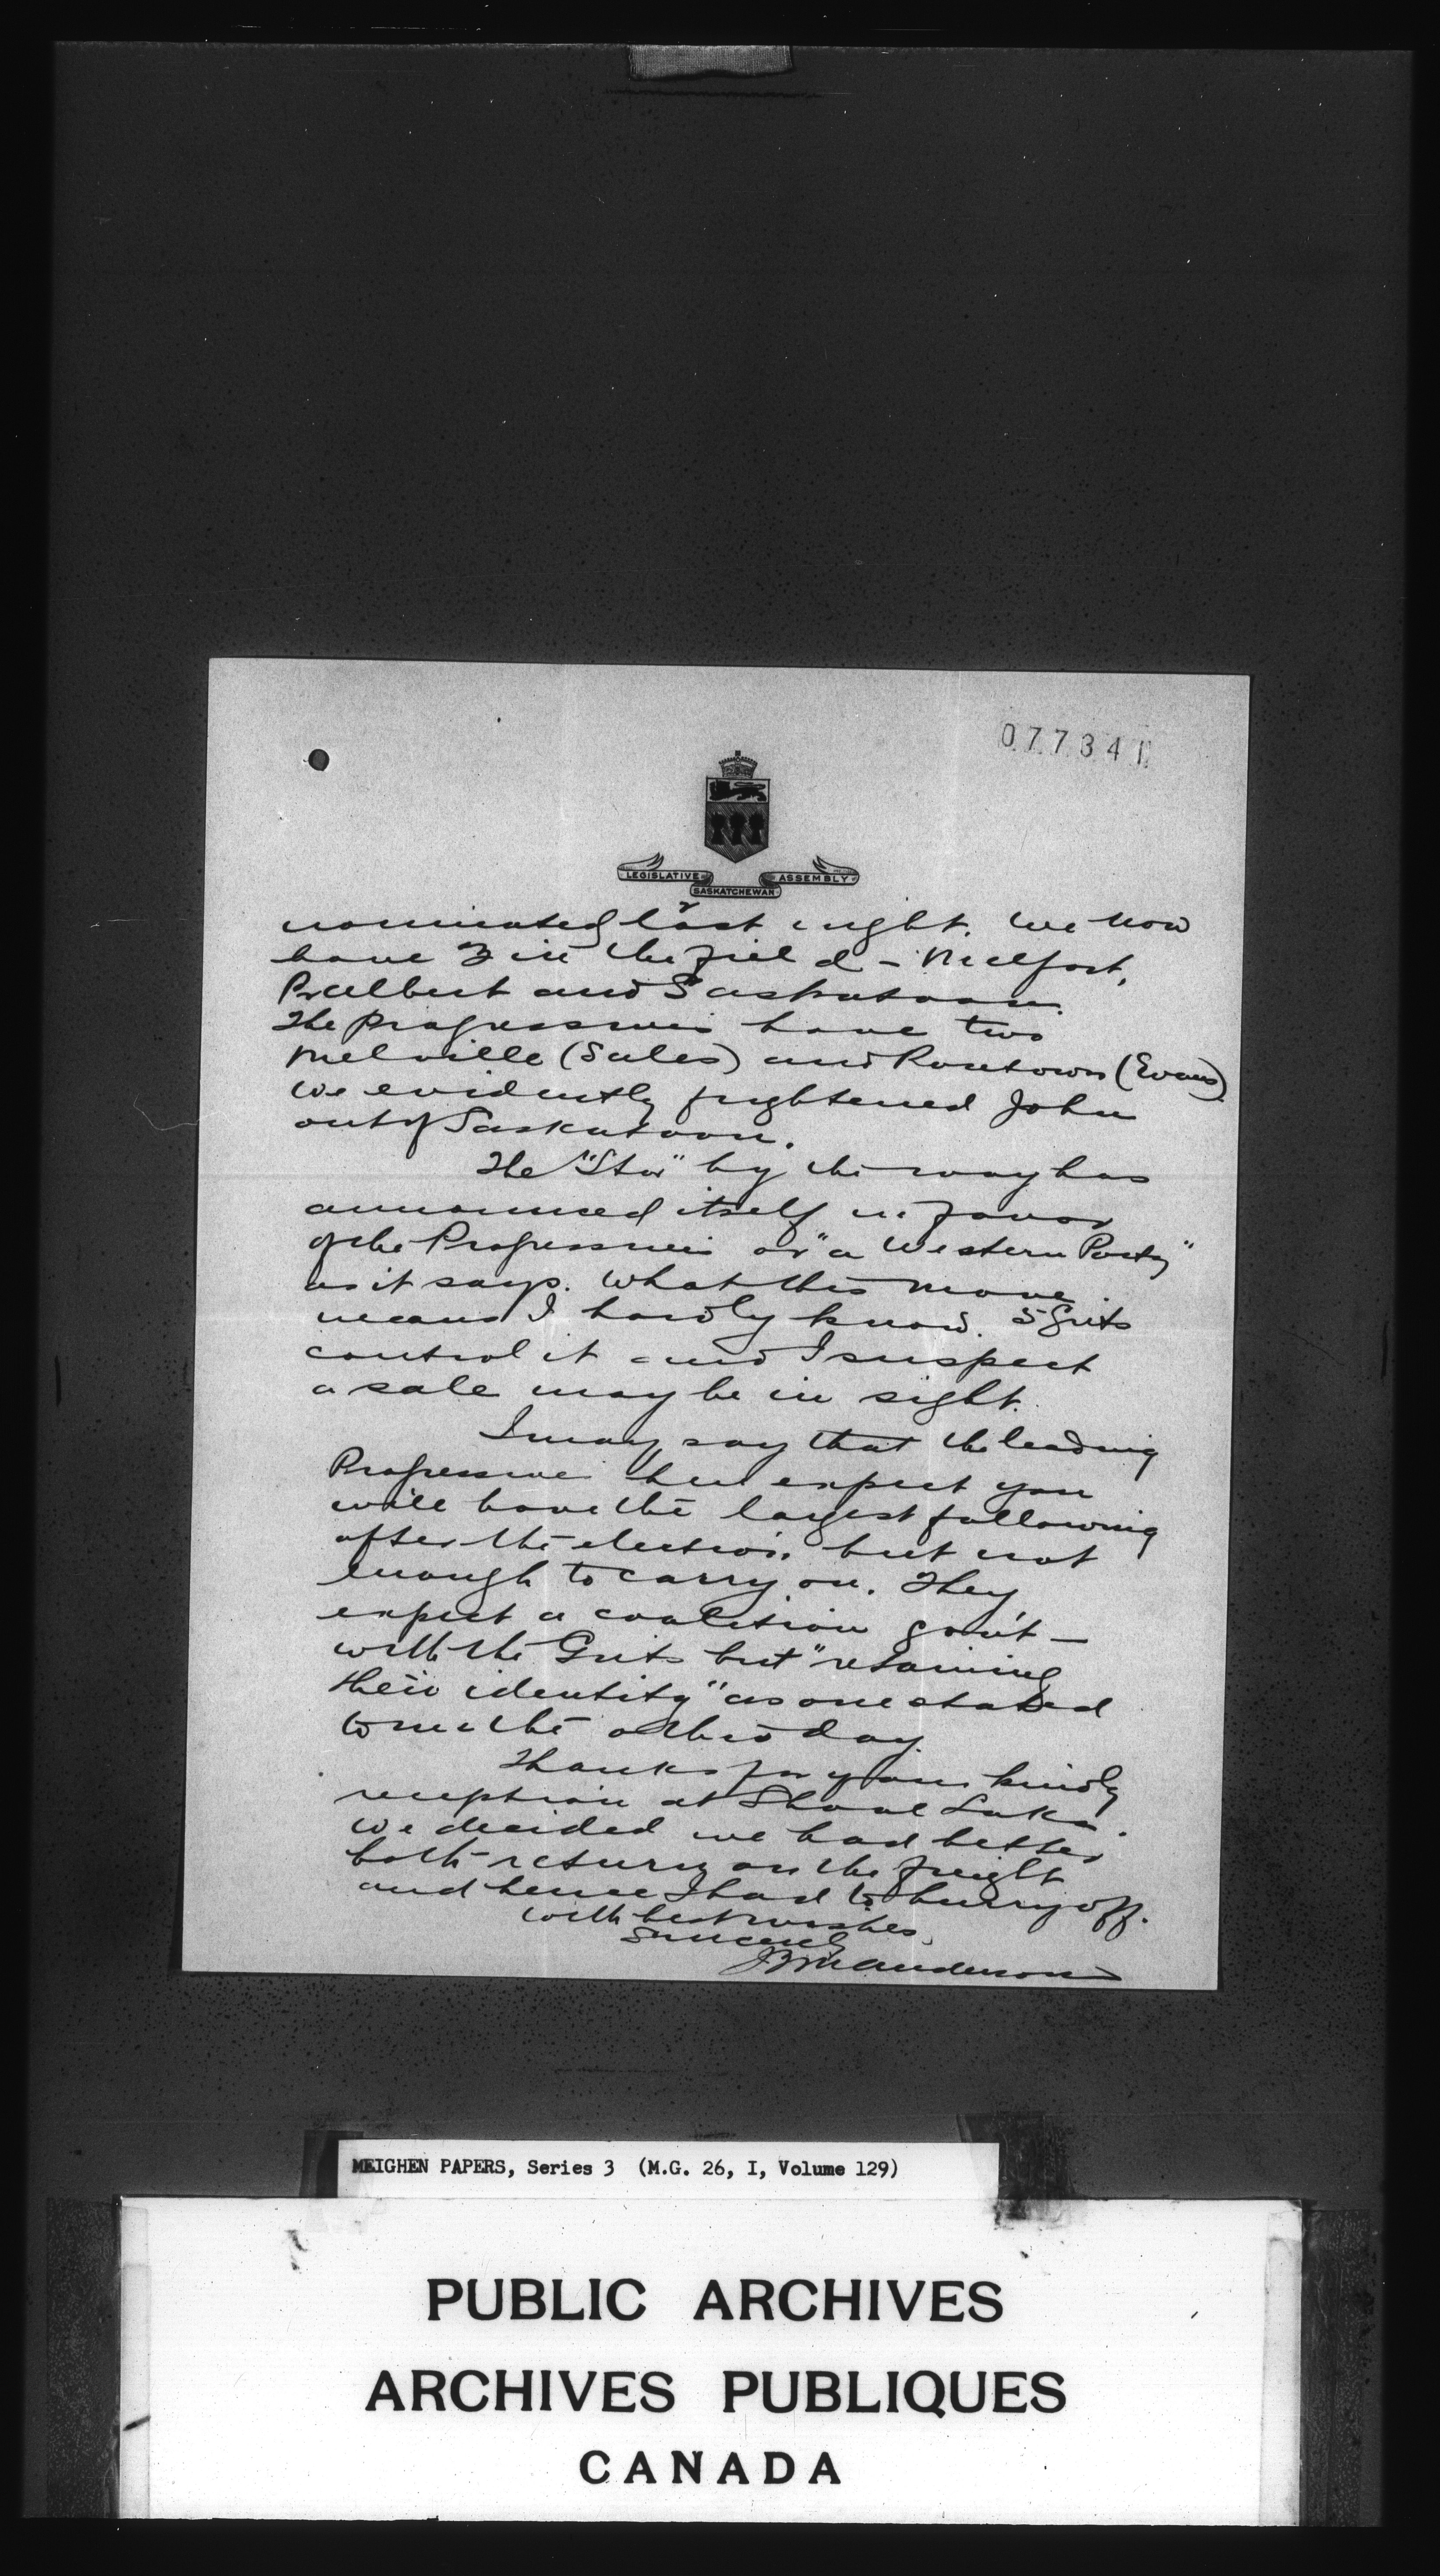 077341
LEGISLATIVE ASSEMBLY
SASKATCHEWAN
nominated last night. We now
have 3 in the field - Melfort,
Pr Albert and Saskatoon.
The Progressives have two
Melville (Sales) and Rosetown (Evans)
We evidently frightened John
out of Saskatoon.
The "Star" by the way has
announced itself in favor
of the Progressives or "a Western Party"
as it says. What this move
means I hardly know. 5 Grits
control it and I suspect
a sale may be in sight.
I may say that the leading
Progressives here expect you
will have the largest following
after the election but not
enough to carry on. They
expect a coalition gov't -
with the Grits but "retaining
their identity" as one stated
to me the other day.
Thanks for your kindly
reception at Shoal Lake.
We decided we had better
both return on the freight
and hence I had to hurry off.
With best wishes,
Sincerely
J.T.M. Anderson
MEIGHEN PAPERS, Series 3 (M.G. 26, I, Volume 129)
PUBLIC ARCHIVES
ARCHIVES PUBLIQUES
CANADA